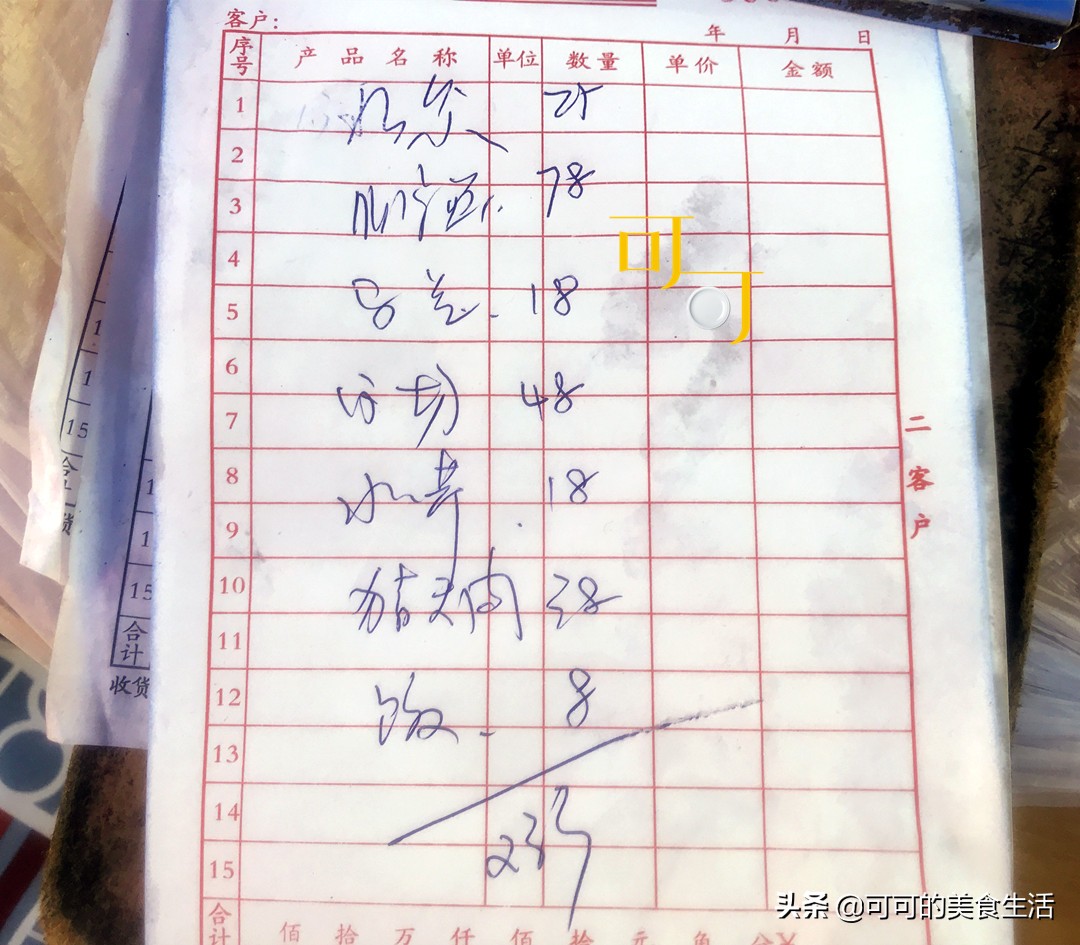 客户: 年 月 日
序号 产品名称 单位 数量 单价 金额
1 25
2
3 78
4
5 18
6
7 白切 48
8 18
9
10 猪头肉 38
11
12 饭 8
13
14
15 233
合计 佰 拾 万 仟 佰 拾 元 角 分¥
二客户
可可
1
1
15
合
1
1
15
合计
收货
头条 @可可的美食生活